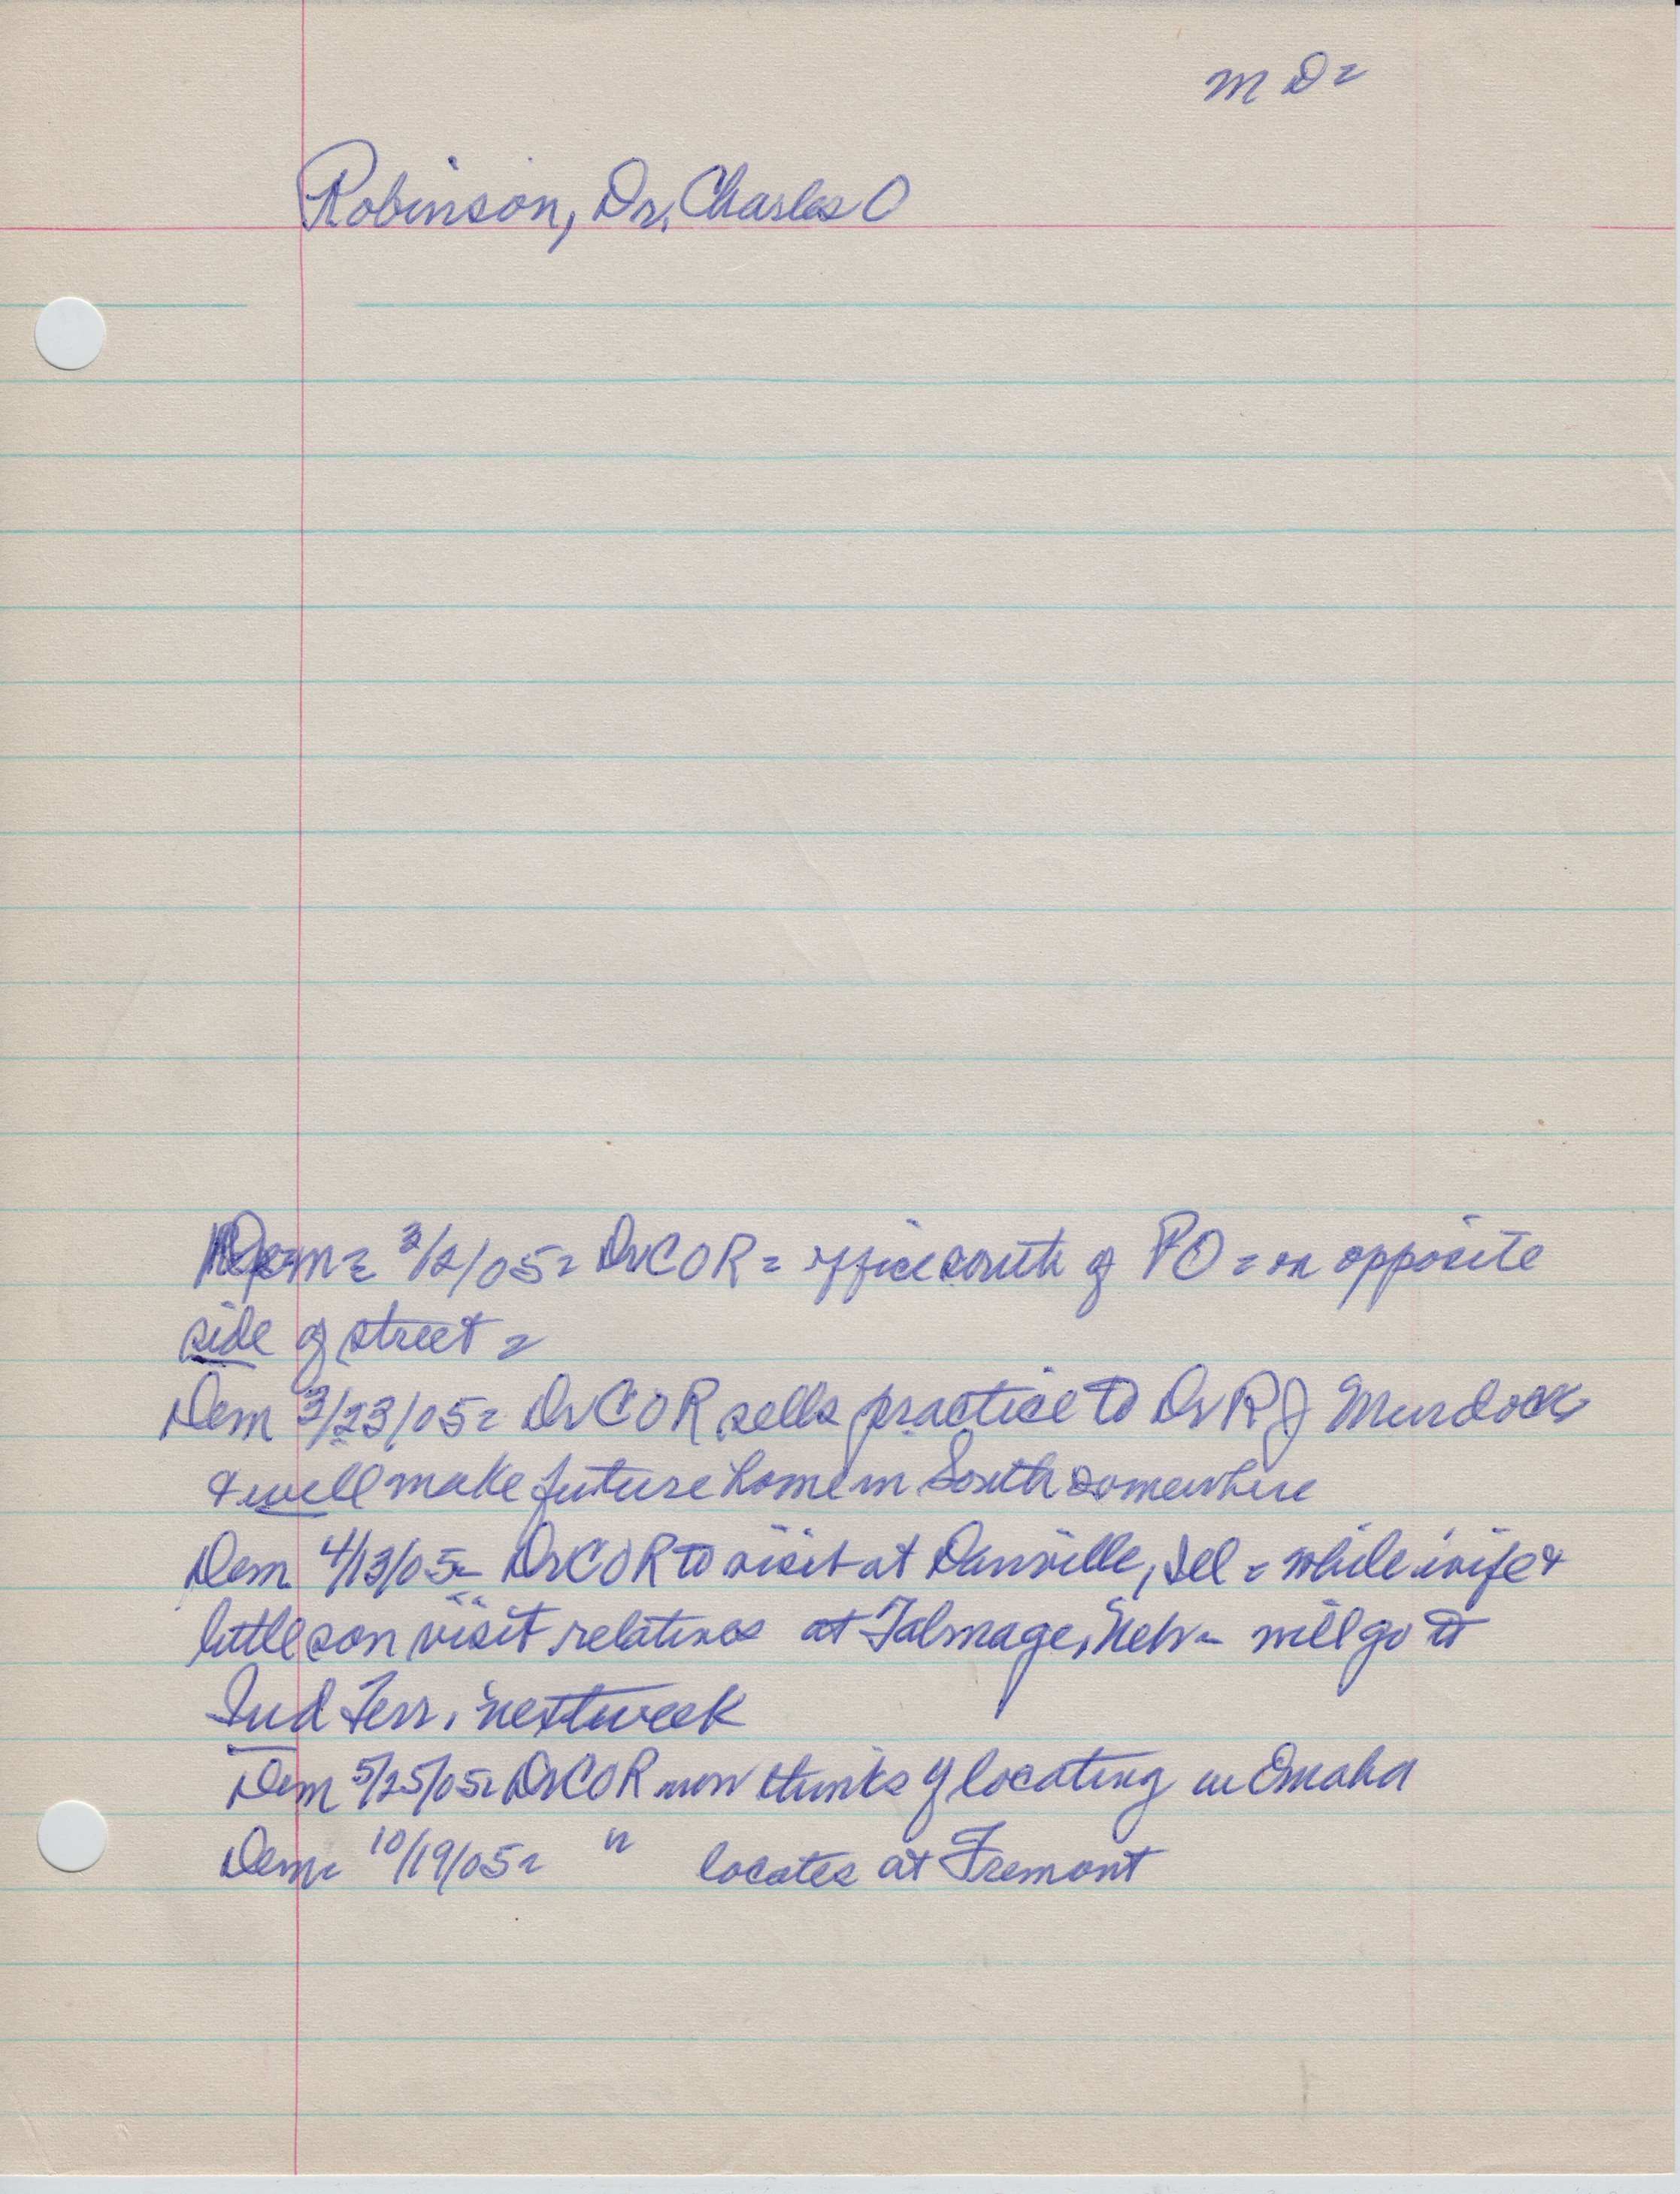 M D =
Robinson, Dr. Charles O
Dem = 3/2/05 = Dr C O R = office south of PO = on opposite
side of street =
Dem 3/23/05 = Dr C O R sells practice to Dr R J Murdock
& will make future home in South somewhere
Dem 4/13/05 = Dr C O R to visit at Danville, Ill = while wife &
little son visit relatives at Talmage, Neb = will go to
Ind Terr. next week
Dem 5/25/05 = Dr C O R now thinks of locating in Omaha
Dem = 10/19/05 = " locates at Fremont